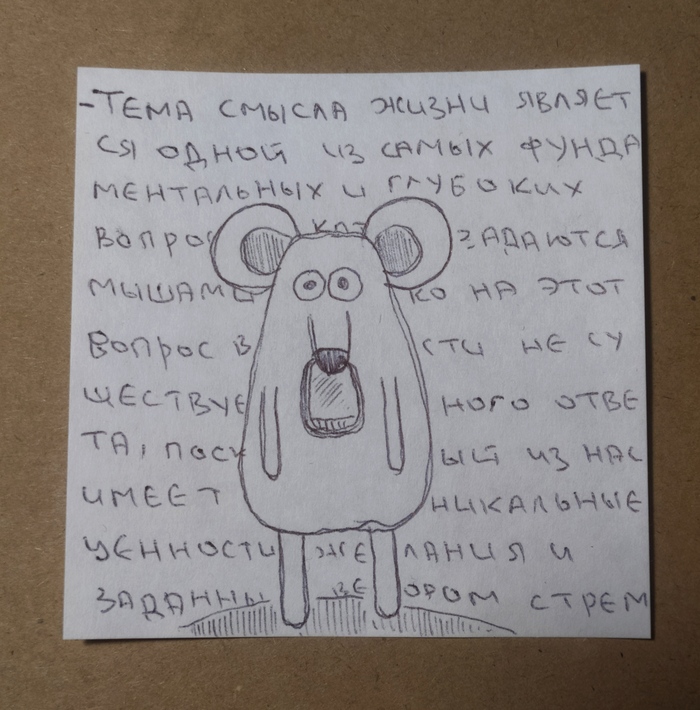 -ТЕМА СМЫСЛА ЖИЗНИ ЯВЛЯЕТ
СЯ ОДНОЙ ИЗ САМЫХ ФУНДА
МЕНТАЛЬНЫХ И ГЛУБОКИХ
ВОПРОС ЗАДАЮТСЯ
МЫШАМИ КО НА ЭТОТ
ВОПРОС В СТИ НЕ СУ
ЩЕСТВУЕ НОГО ОТВЕ
ТА, ПОСК ЫЙ ИЗ НАС
ИМЕЕТ НИКАЛЬНЫЕ
ЦЕННОСТИ ЖЕ ЛАНИЯ И
ЗАДАННЫ ВЕ ОРОМ СТРЕМ